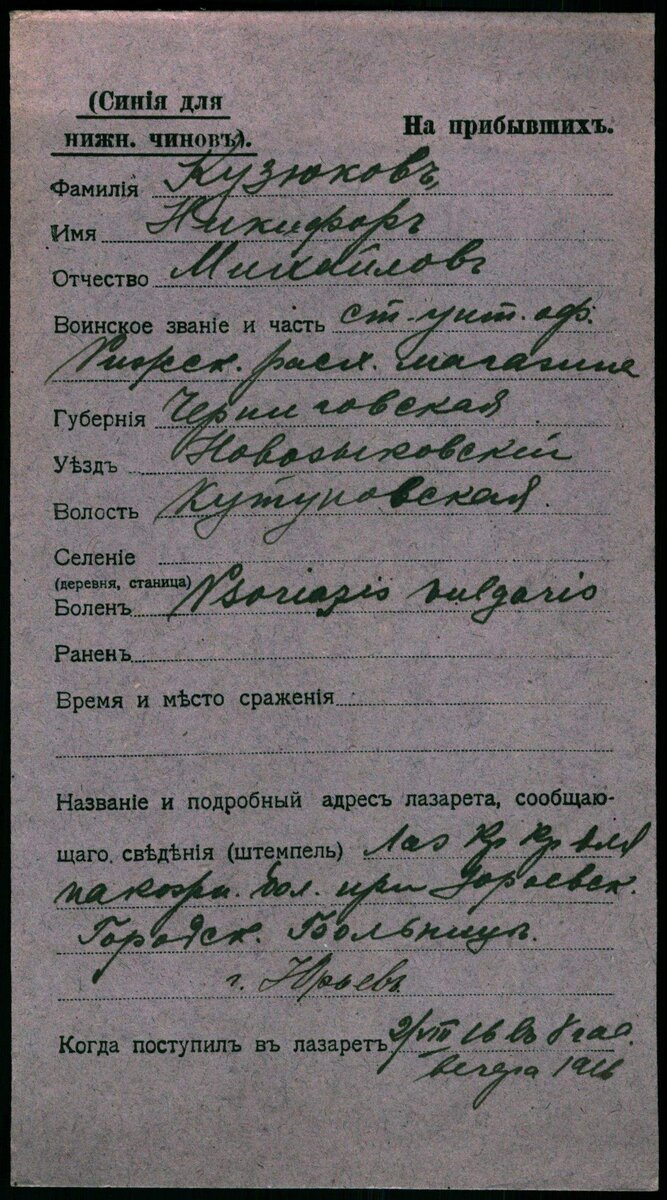 (Синія для
нижн. чиновъ).
На прибывшихъ.
Фамилія Кузюковъ
Имя Никифоръ
Отчество Михайловъ
Воинское званіе и часть ст. унт. оф.
расх. магазина
Губернія Черниговская
Уѣздъ Новозыковскій
Волость
Селеніе
(деревня, станица)
Боленъ Psoriasis vulgaris
Раненъ
Время и мѣсто сраженія
Названіе и подробный адресъ лазарета, сообщаю-
щаго свѣдѣнія (штемпель) Лаз Кр Кр для
бол. при Юрьевск.
Городск. Больницы.
г. Юрьевъ
Когда поступилъ въ лазаретъ 2/VIII 16 въ 8 час.
вечера 1916